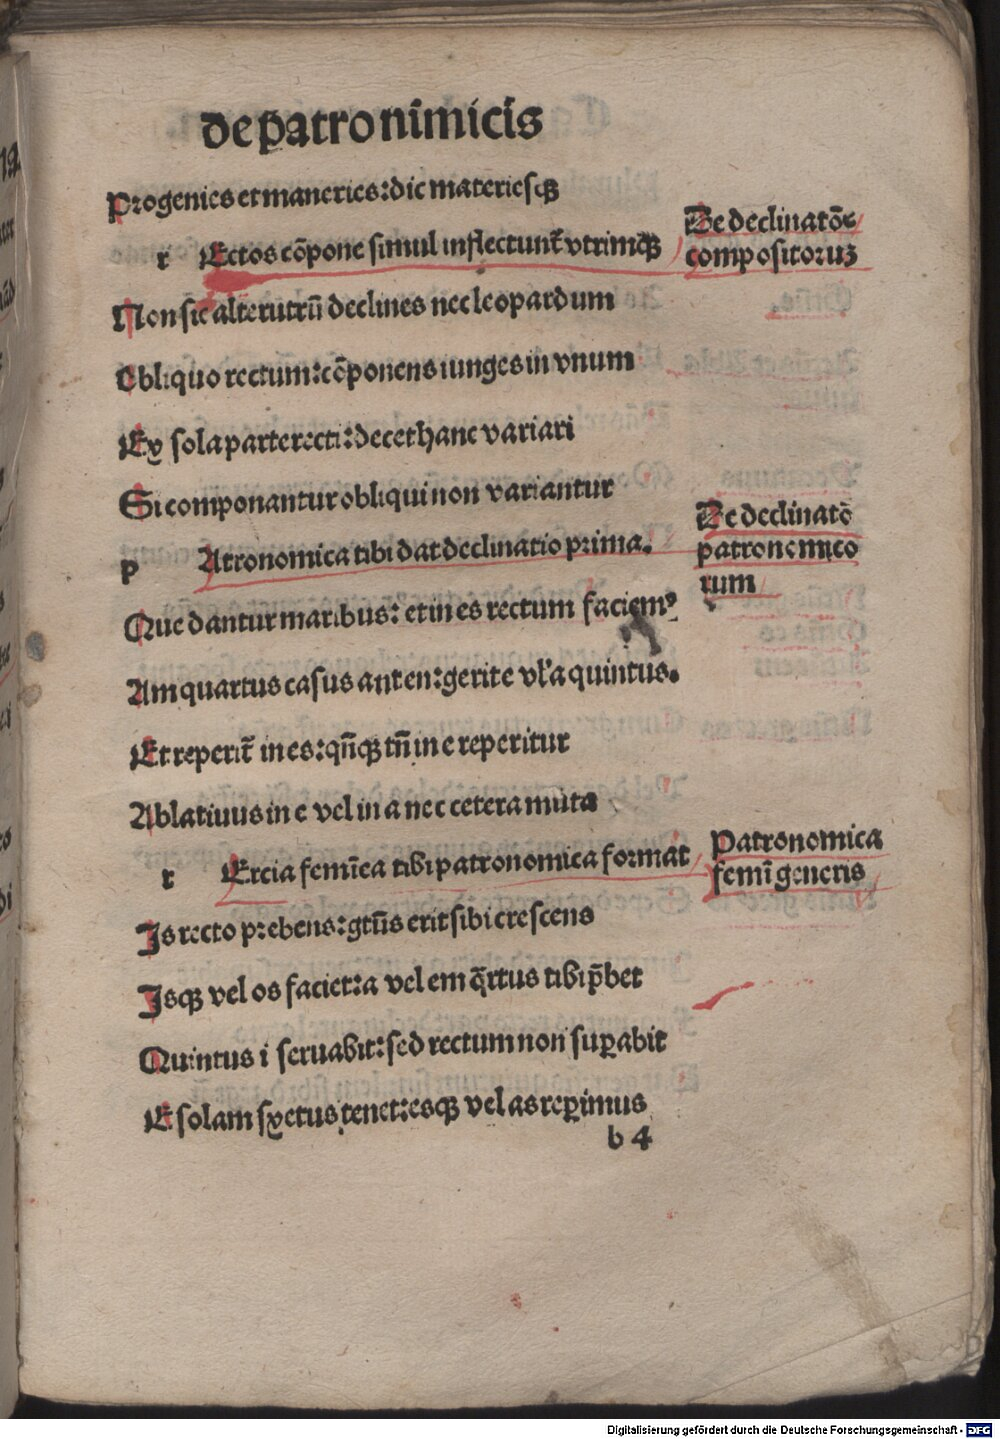 de patronimicis
Progenies et maneries: dic materiesqꝫ
r Ectos cōpone simul inflectunt̄ vtrimqꝫ
De declinatōe
compositoruꝫ
Non sic alterutrū declines nec leopardum
Obliquo rectum: cōponens iunges in vnum
Ex sola parte recti: decet hanc variari
Si componantur obliqui non variantur
p Atronomica tibi dat declinatio prima.
De declinatō
patronomico
rum
Que dantur maribus: et in es rectum faciemꝰ
Am quartus casus an t en: gerit e vl̓ a quintus.
Et reperit̄ in es: qn̄qꝫ tn̄ in e reperitur
Ablatiuus in e vel in a nec cetera muta
r Ercia femīea tibi patronomica format
Patronomica
femī generis
Is recto prebens: gtūs erit sibi crescens
Isqꝫ vel os faciet: a vel em q̄rtus tibi p̄bet
Quintus i seruabit: sed rectum non suꝑabit
E solam sxetus tenet: esqꝫ vel as reꝑimus
b 4
Digitalisierung gefördert durch die Deutsche Forschungsgemeinschaft - DFG